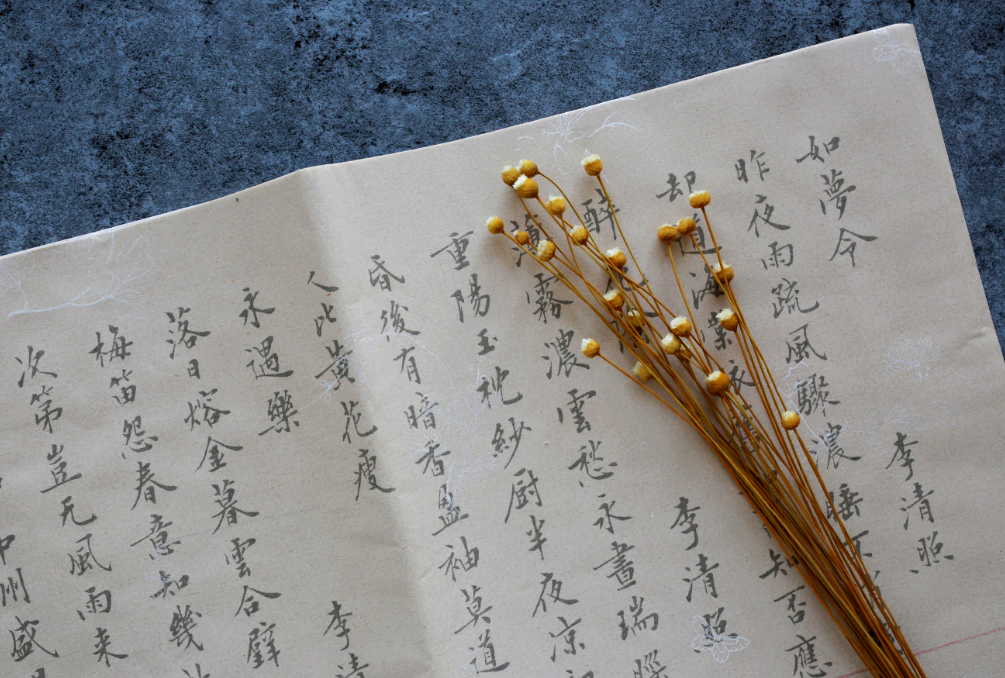 如夢令 李清照
昨夜雨疏風驟濃睡不
却道海棠依 知否應
醉花 李清照
薄霧濃雲愁永晝瑞腦
重陽玉枕紗厨半夜凉
昏後有暗香盈袖莫道
人比黄花瘦
永遇樂 李清
落日熔金暮雲合璧
梅笛怨春意知幾
次第豈无風雨来
中州盛